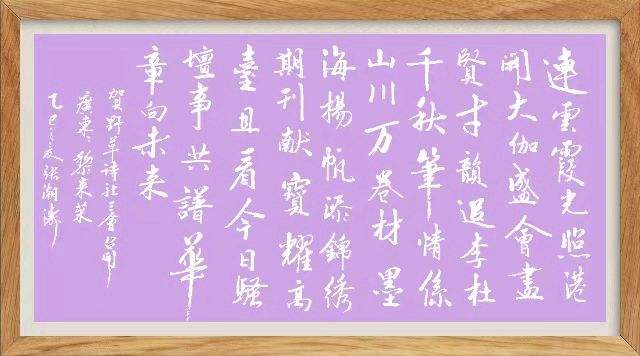 連雲霞光照港
開大伽盛會盡
賢才韻追李杜
千秋筆情係
山川万卷材墨
海揚帆添錦绣
期刊献寶耀高
臺且看今日騷
壇事共譜華
章向未来
賀野草诗社
廣東黎来菜
乙巳之夏张瀚涛